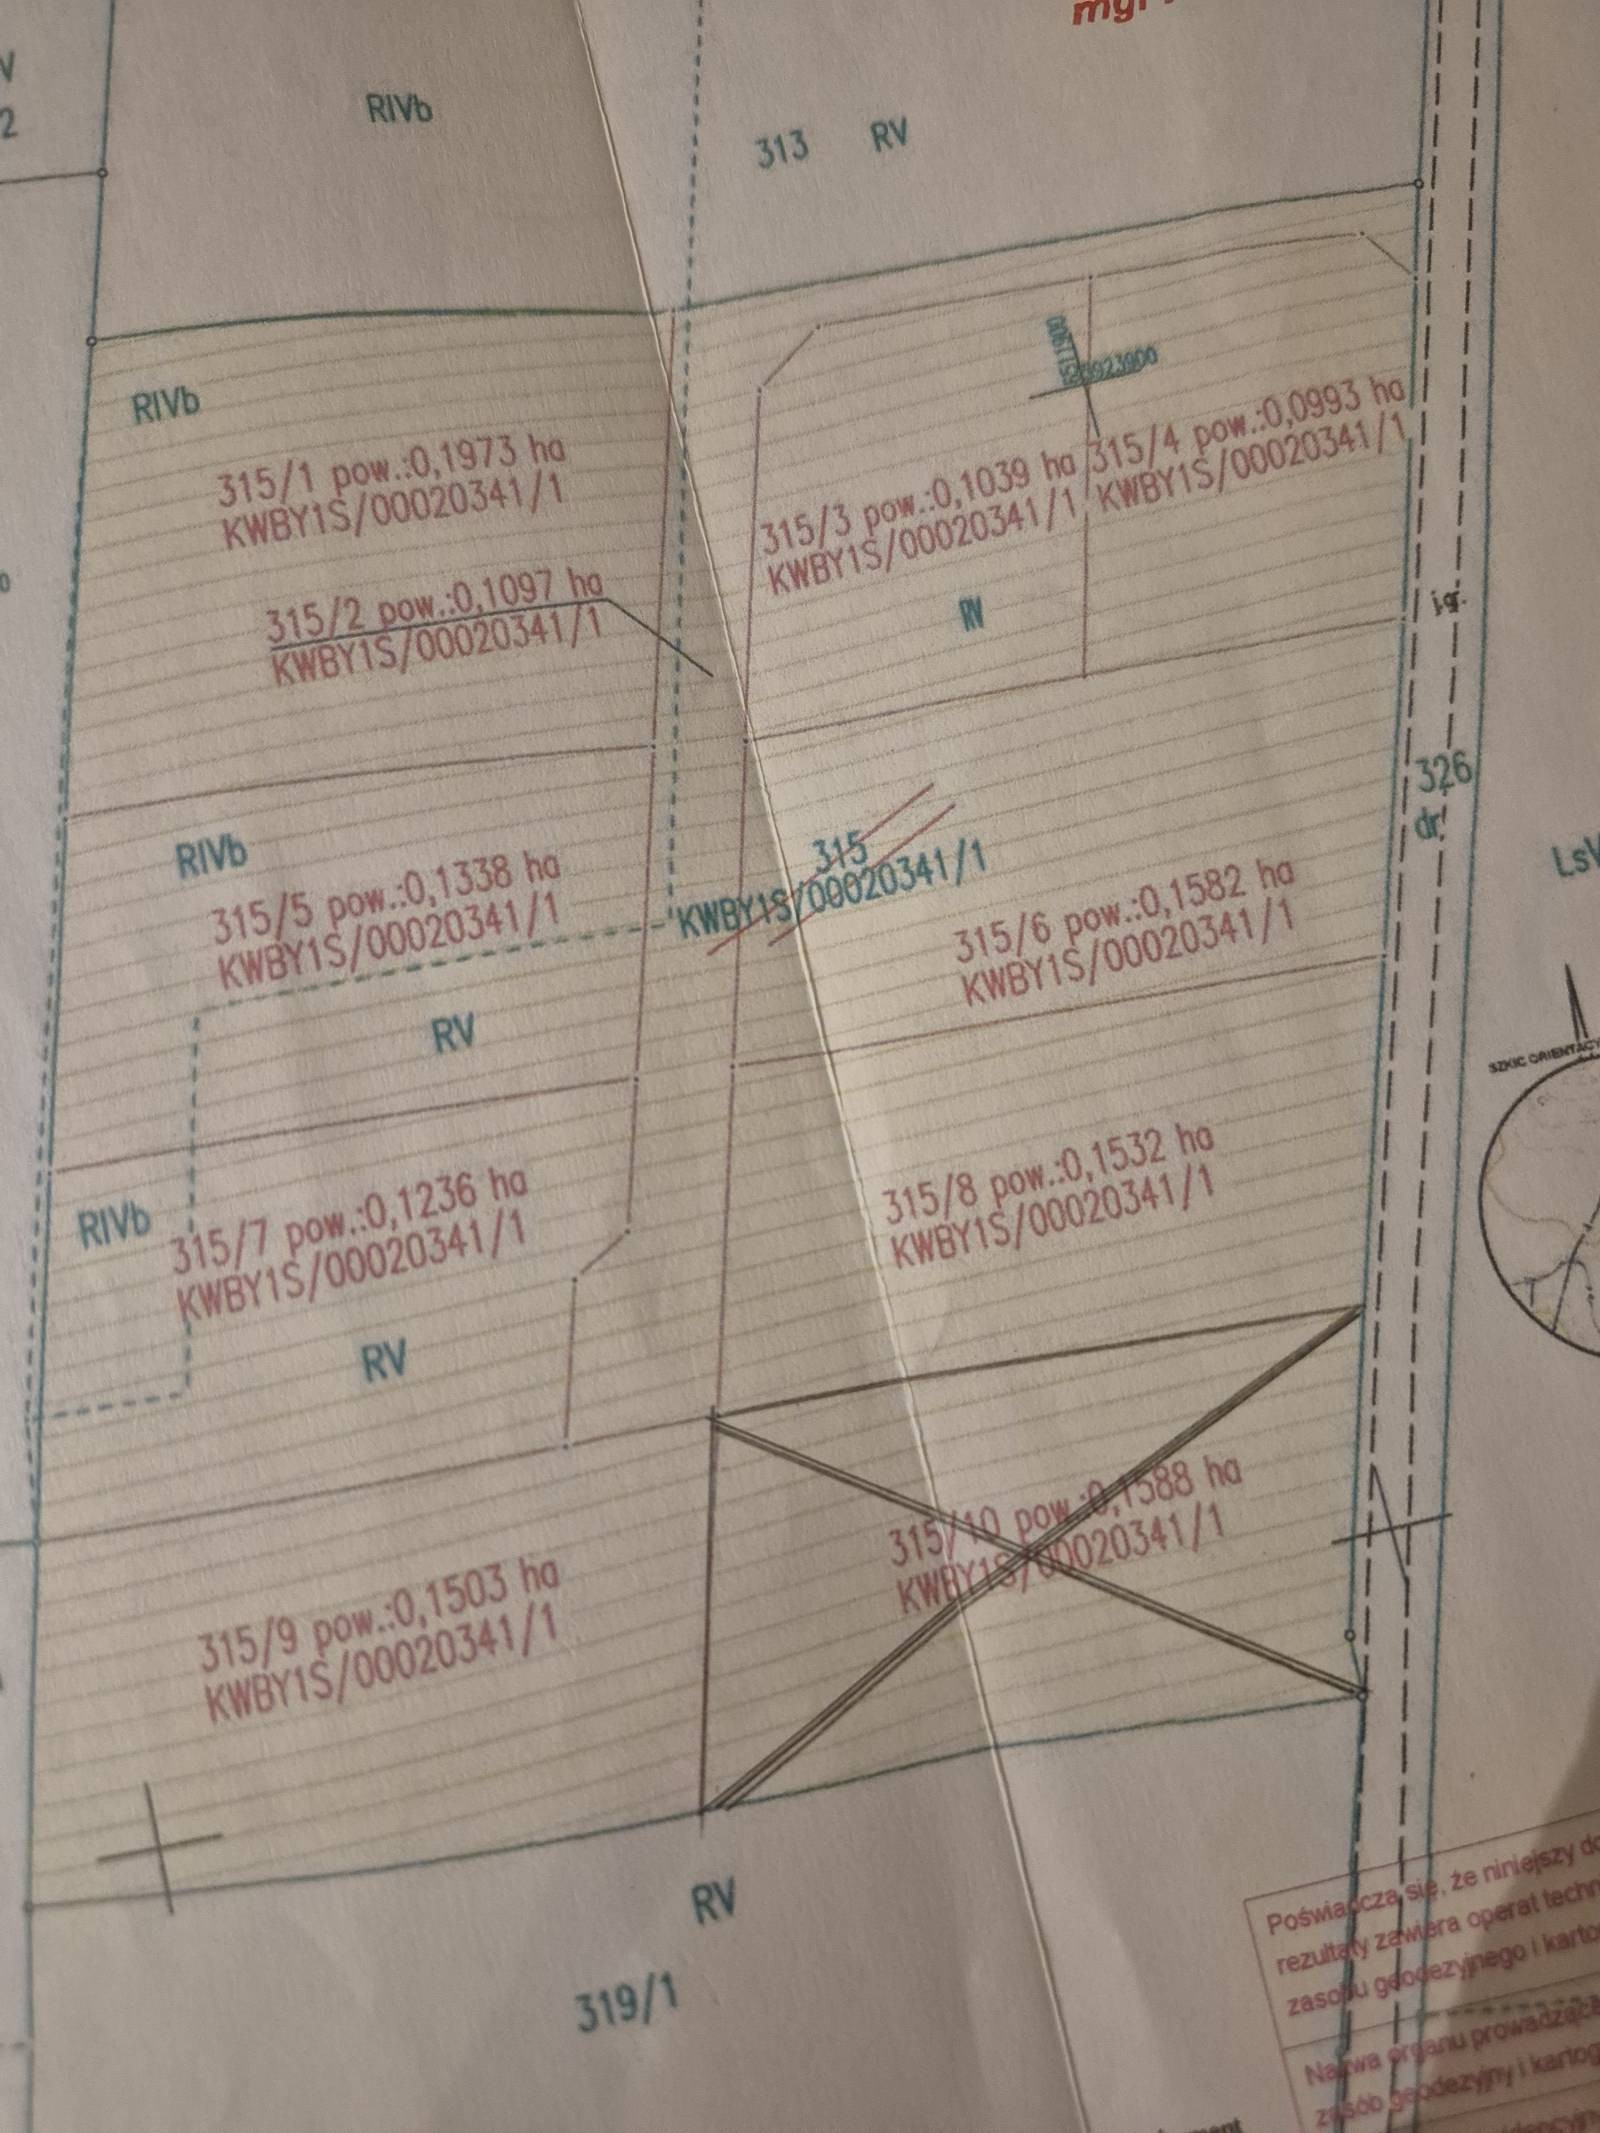 RIVb
313 RV
RIVb
315/1 pow.:0,1973 ha
KWBY1S/00020341/1
315/2 pow.:0,1097 ha
KWBY1S/00020341/1
315/3 pow.:0,1039 ha
KWBY1S/00020341/1
315/4 pow.:0,0993 ha
KWBY1S/00020341/1
RV
j.gr.
326
dr.
RIVb
315/5 pow.:0,1338 ha
KWBY1S/00020341/1
315
KWBY1S/00020341/1
315/6 pow.:0,1582 ha
KWBY1S/00020341/1
RV
RIVb
315/7 pow.:0,1236 ha
KWBY1S/00020341/1
315/8 pow.:0,1532 ha
KWBY1S/00020341/1
RV
315/9 pow.:0,1503 ha
KWBY1S/00020341/1
315/10 pow.:0,1588 ha
KWBY1S/00020341/1
RV
319/1
SZKIC
Poświadcza się, że niniejszy
rezultaty zawiera operat
zasobu geodezyjnego i
Nazwa organu
zasób geodezyjny i